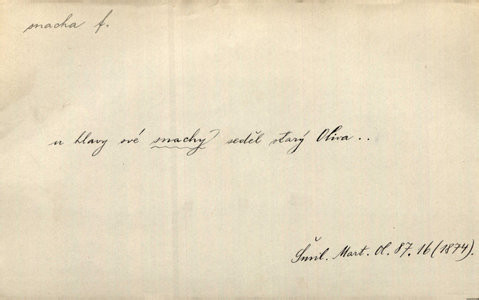 snacha f.
u hlavy své snachy seděl starý Oliva..
Šmil. Mart. Ol. 87, 16 (1874).